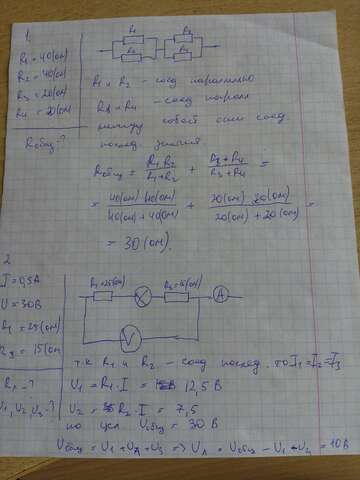 1.
R₁ = 40(Ом)
R₂ = 40(Ом)
R₃ = 20(Ом)
R₄ = 20(Ом)
Rобщ ?
R₁
R₂
R₃
R₁ и R₂ - соед параллельно
R₃ и R₄ - соед паралл
между собой они соед
послед, значит
Rобщ = R₁ R₂ / R₁+R₂ + R₃+R₄ / R₃+R₄ =
= 40(Ом) 40(Ом) / 40(Ом)+40(Ом) + 20(Ом) 20(Ом) / 20(Ом)+20(Ом) =
= 30(Ом).
2
I = 0,5А
U = 30В
R₁ = 25(Ом)
R₂ = 15(Ом)
Rл - ?
U₁, U₂, U₃ - ?
R₁=25(Ом)
R₂=15(Ом)
A
V
т.к R₁ и R₂ - соед послед. то I₁=I₂=I₃
U₁ = R₁·I = 12,5В
U₂ = R₂·I = 7,5
по усл Uобщ = 30В
Uобщ = U₁+U₂+U₃ => Uл = Uобщ - U₁ - U₂ = 10В